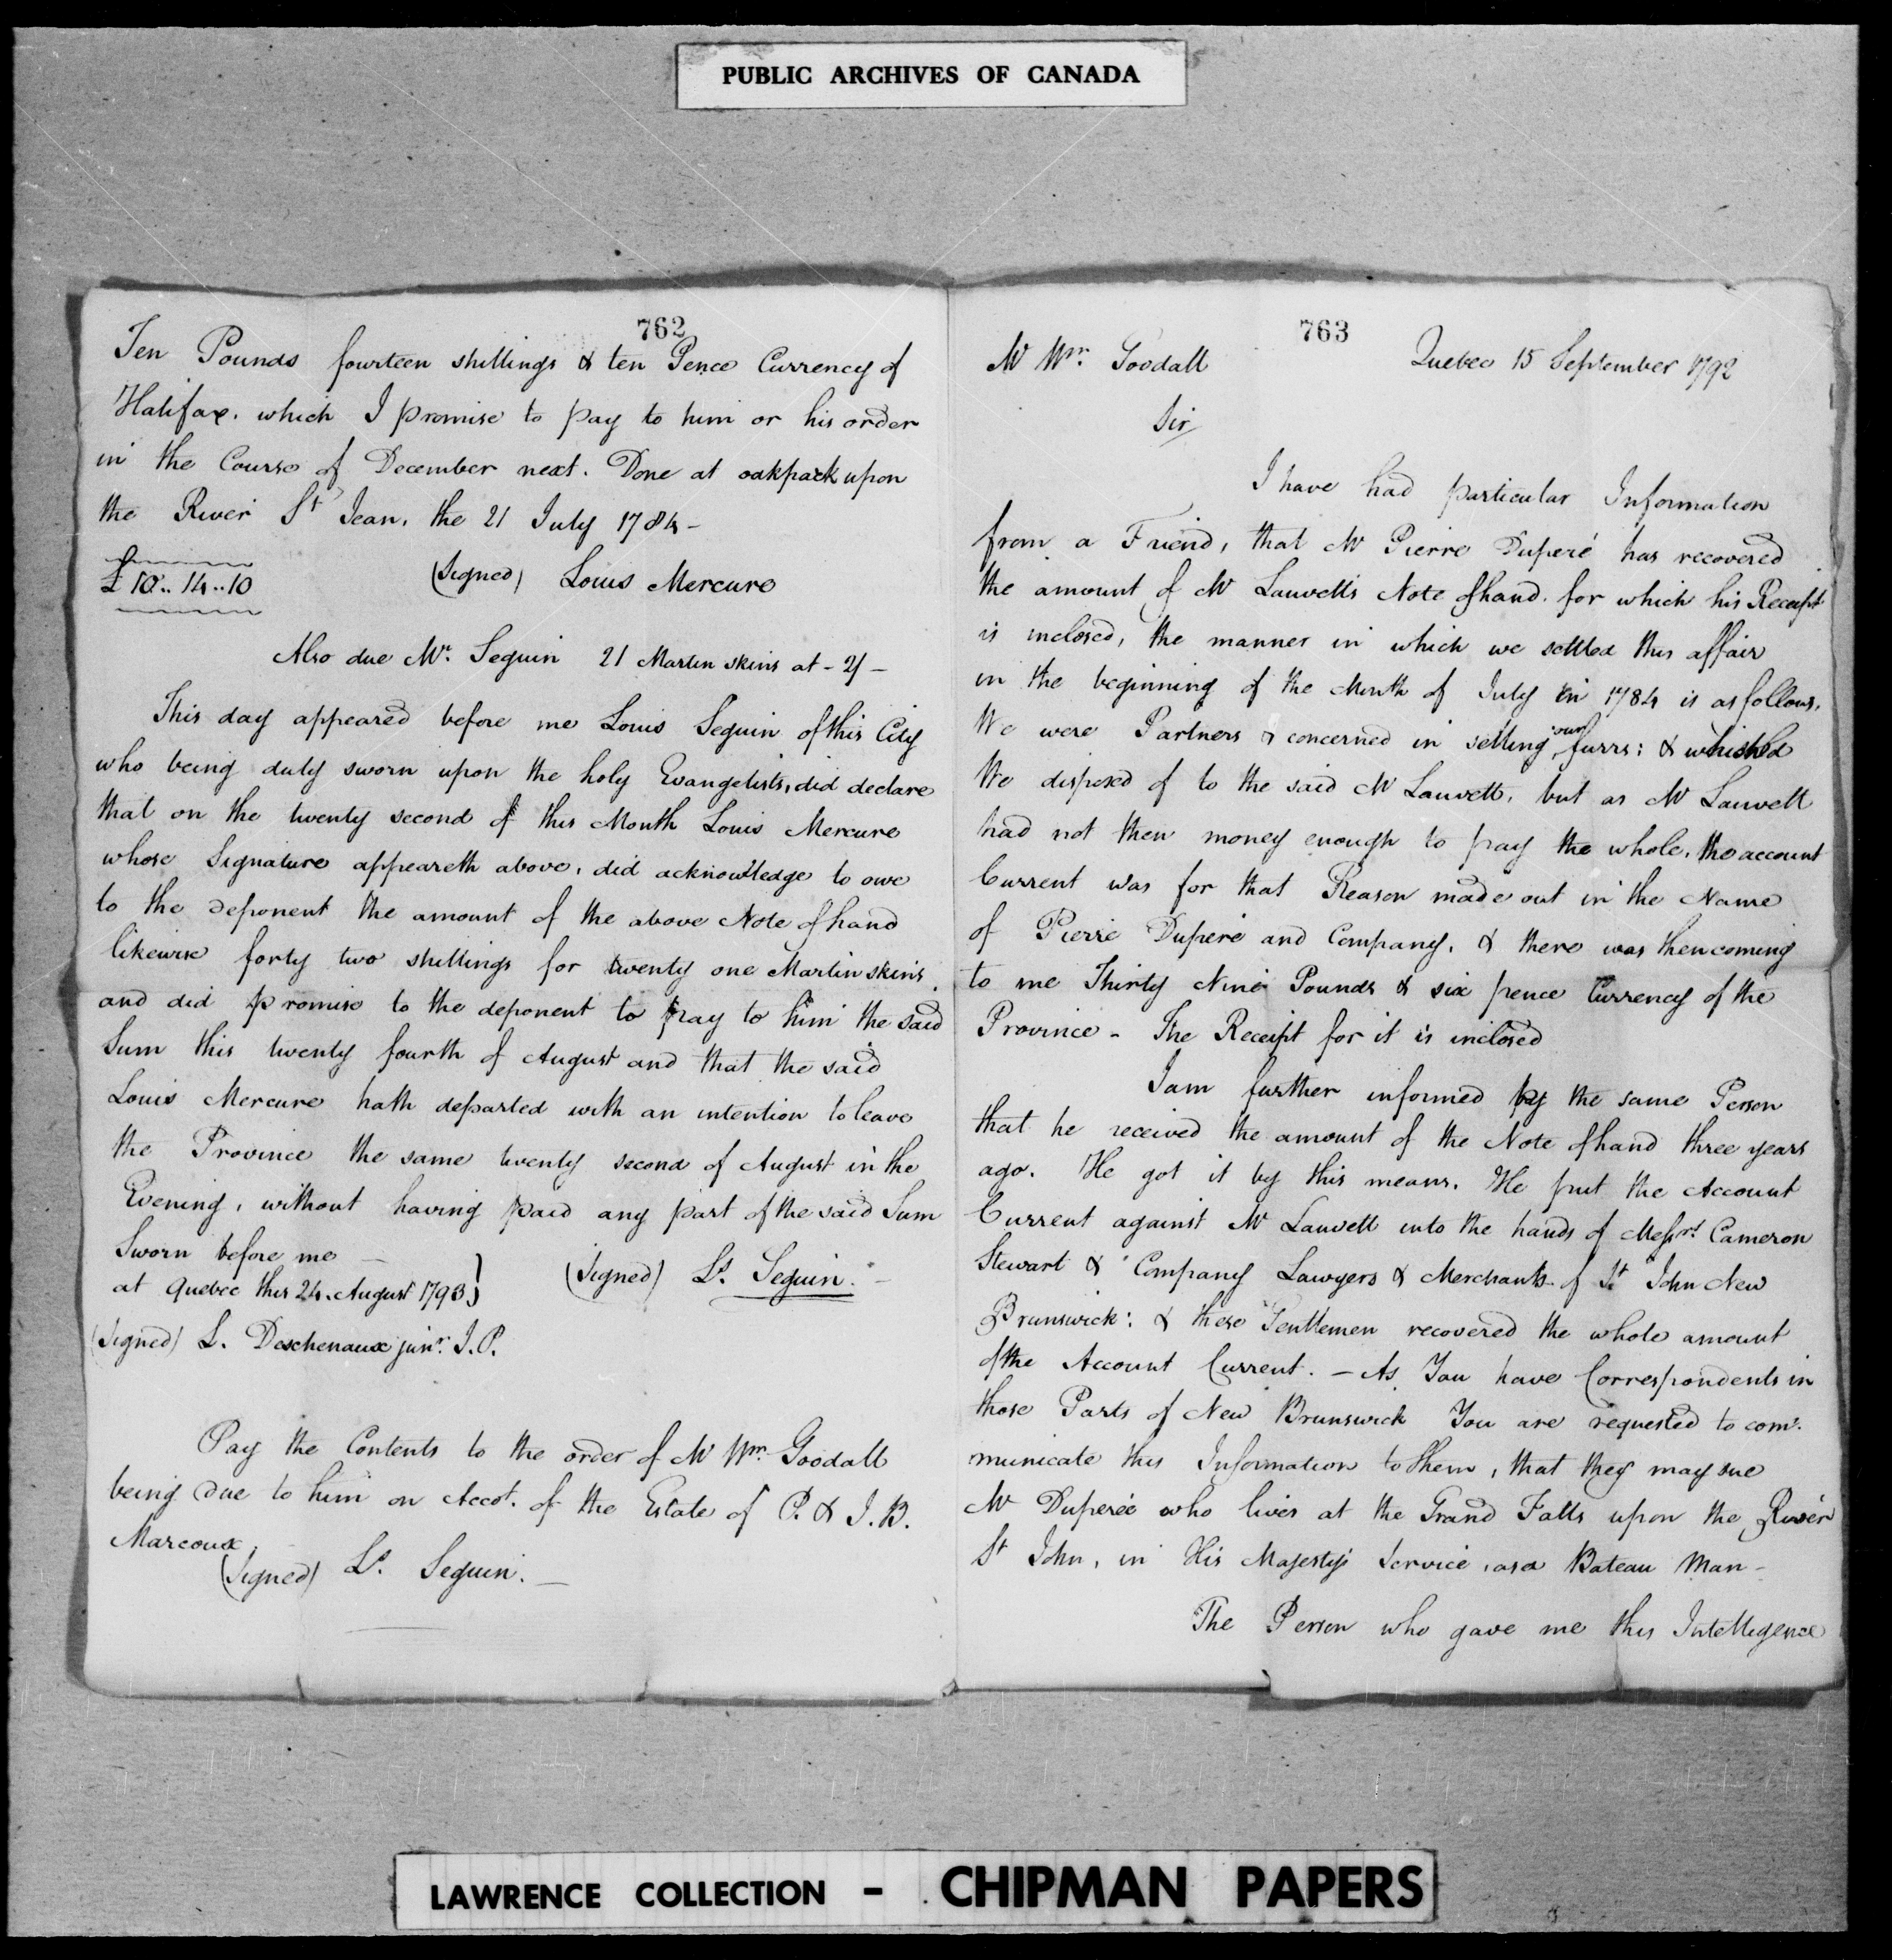 PUBLIC ARCHIVES OF CANADA
762
Ten Pounds fourteen shillings & ten Pence Currency of
Halifax. which I promise to pay to him or his order
in the Course of December next. Done at oakpark upon
the River St Jean, the 21 July 1784 -
£ 10.. 14..10 (Signed) Louis Mercure
Also due Mr. Seguin 21 Martin skins at - 2/ -
This day appeared before me Louis Seguin of this City
who being duly sworn upon the holy Evangelists, did declare
that on the twenty second of this Month Louis Mercure
whose Signature appeareth above, did acknowledge to owe
to the deponent the amount of the above Note of hand
likewise forty two shillings for twenty one Martin skins.
and did promise to the deponent to pay to him the said
Sum this twenty fourth of August and that the said
Louis Mercure hath departed with an intention to leave
the Province the same twenty second of August in the
Evening, without having paid any part of the said Sum
Sworn before me -
at Quebec this 24. August 1793} (Signed) Ls. Seguin. -
(Signed) L. Deschenaux junr. J.P.
Pay the Contents to the order of Mr Wm. Goodall
being due to him on Accot. of the Estate of P. & J.B.
Marcoux.
(Signed) Ls. Seguin. -
763
Mr Wm. Goodall Quebec 15 September 1792
Sir/
I have had particular Information
from a Friend, that Mr Pierre Duperé has recovered
the amount of Mr Lauvell's Note of hand. for which his Receipt
is inclosed, the manner in which we settled this affair
in the beginning of the Month of July in 1784 is as follows.
We were Partners & concerned in selling our furrs: & which
We disposed of to the said Mr Lauvell, but as Mr Lauvell
had not then money enough to pay the whole, the account
Current was for that Reason made out in the Name
of Pierre Duperé and Company, & there was then coming
to me Thirty Nine Pounds & six pence Currency of the
Province - The Receipt for it is inclosed
I am further informed by the same Person
that he received the amount of the Note of hand three years
ago. He got it by this means. He put the Account
Current against Mr Lauvell into the hands of Messrs. Cameron
Stewart & Company Lawyers & Merchants of St John New
Brunswick: & these Gentlemen recovered the whole amount
of the Account Current. - As You have Correspondents in
those Parts of New Brunswick You are requested to com-
municate this Information to them, that they may sue
Mr Duperé who lives at the Grand Falls upon the River
St John, in His Majesty's Service, as a Bateau Man -
The Person who gave me this Intelligence
LAWRENCE COLLECTION - CHIPMAN PAPERS